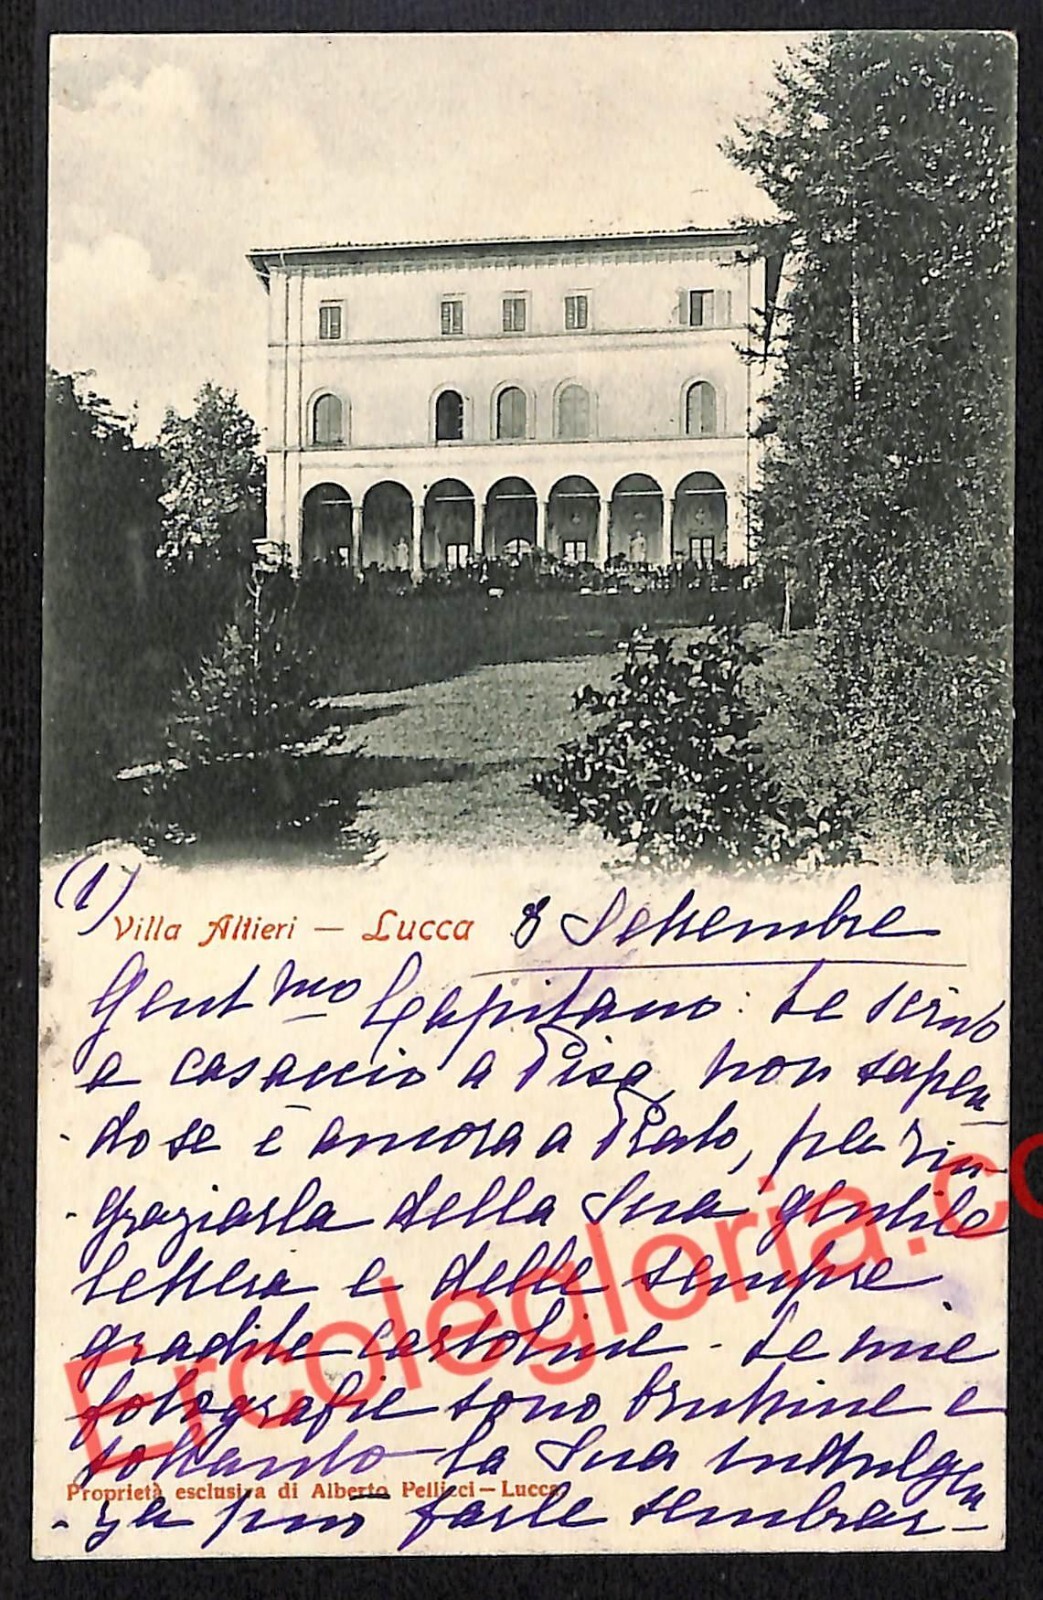 (1)
Villa Altieri – Lucca 8 Settembre
Gent.mo Capitano: Le scrivo
a casaccio a Pisa, non sapen-
do se è ancora a Prato, per rin-
-graziarla della Sua gentile
lettera e delle sempre
gradite cartoline - Le mie
fotografie sono bruttine e
soltanto la Sua indulgen
Proprietà esclusiva di Alberto Pellicci – Lucca
-za può farle sembrar-
Ercolegloria.co